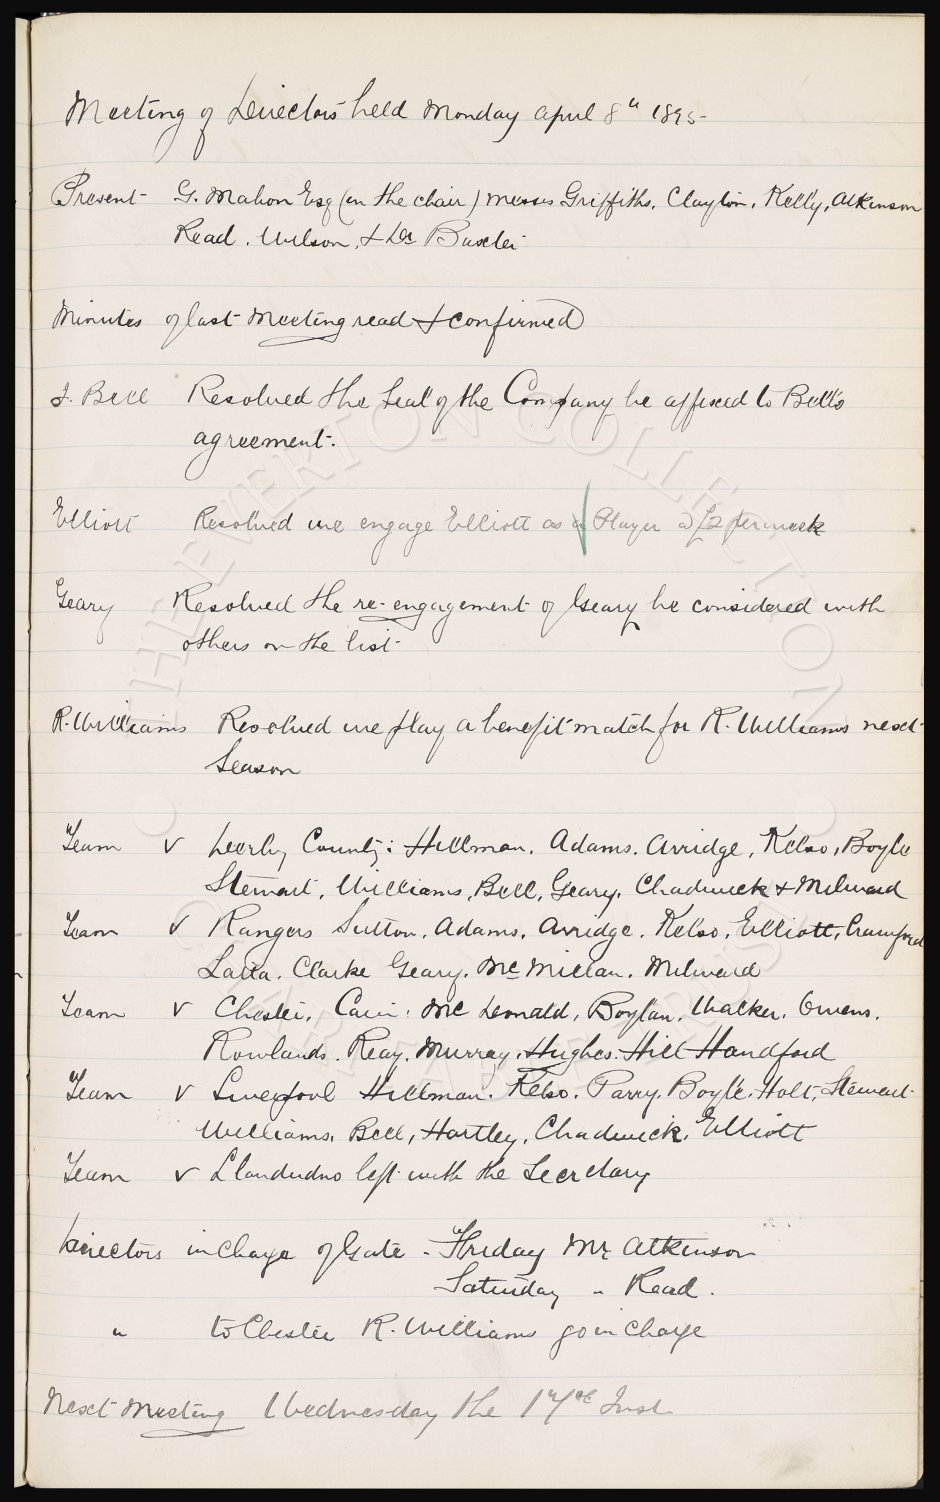 Meeting of Directors held Monday April 8th 1895
Present - G. Mahon Esq (in the chair) Messrs Griffiths, Clayton, Kelly, Atkinson
Read, Wilson, & Dr Baxter
Minutes of last Meeting read & confirmed
J. Bell Resolved the Seal of the Company be affixed to Bell's
agreement.
Elliott Resolved we engage Elliott as a Player @ £2 per week
Geary Resolved the re-engagement of Geary be considered with
others on the list
R. Williams Resolved we play a benefit match for R. Williams next
Season
Team v Derby County: Hillman, Adams, Arridge, Kelso, Boyle
Stewart, Williams, Bell, Geary, Chadwick & Milward
Team v Rangers Sutton, Adams, Arridge, Kelso, Elliott, Crawford
Latta, Clarke Geary, McMillan, Milward
Team v Chester, Cain, McDonald, Boylan, Walker, Owens,
Rowlands, Reay, Murray, Hughes, Hill Handford
Team v Liverpool Hillman, Kelso, Parry, Boyle, Holt, Stewart
Williams, Bell, Hartley, Chadwick, Elliott
Team v Llandudno left with the Secretary
Directors in Charge of Gate - Friday Mr Atkinson
Saturday " Read.
" to Chester R. Williams go in Charge
Next Meeting Wednesday the 17th Inst
THE EVERTON COLLECTION